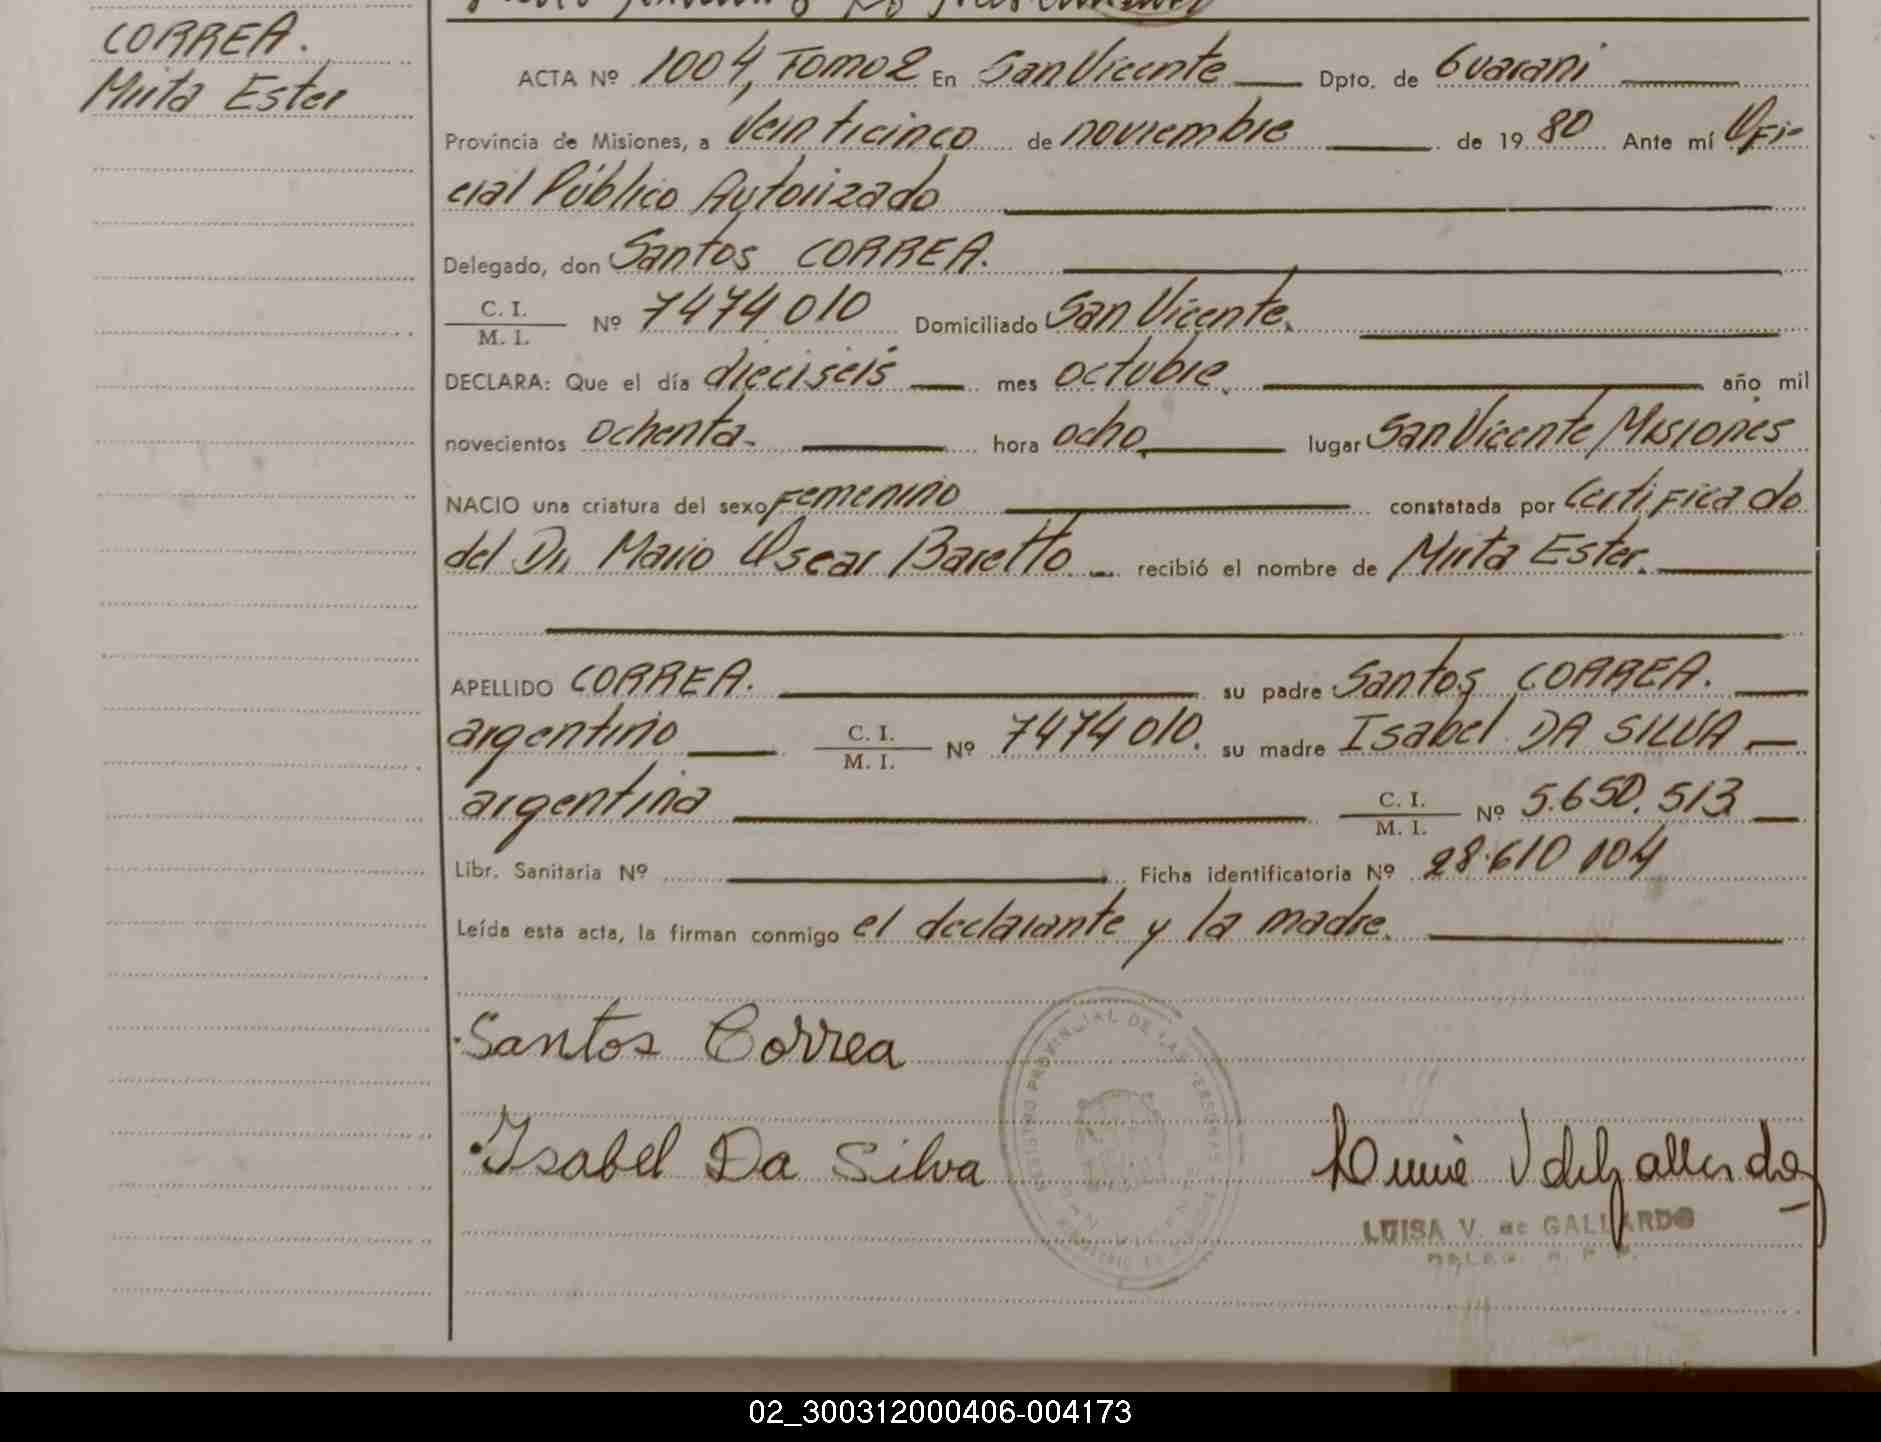 CORREA.
Mirta Ester
ACTA Nº 1004, Tomo 2 En San Vicente Dpto. de Guarani
Provincia de Misiones, a veinticinco de noviembre de 19 80 Ante mí Ofi-
cial Público Autorizado
Delegado, don Santos CORREA.
C. I.
M. I.
Nº 7474010 Domiciliado San Vicente.
DECLARA: Que el día dieciseis mes octubre año mil
novecientos ochenta hora ocho lugar San Vicente Misiones
NACIO una criatura del sexo Femenino constatada por Certificado
del Dr. Mario Oscar Baretto recibió el nombre de Mirta Ester.
APELLIDO CORREA. su padre Santos CORREA.
argentino C. I. M. I. Nº 7474010. su madre Isabel DA SILVA
argentina C. I. M. I. Nº 5.650.513
Libr. Sanitaria Nº Ficha identificatoria Nº 28.610 104
Leída esta acta, la firman conmigo el declarante y la madre.
Santos Correa
Isabel Da Silva
REGISTRO PROVINCIAL DE LAS PERSONAS
LUISA V. de GALLARDO
02_300312000406-004173